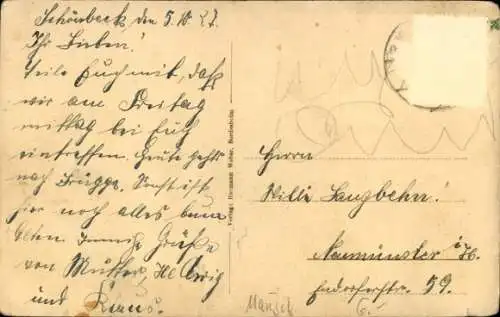 Schönbeck den 5.10.27.
Ihr Lieben!
Teile Euch mit, daß
wir am Freitag
mittag bei Euch
eintreffen. Heute gehts
nach Brügge. Sonst ist
hier noch alles beim
alten. Innige Grüße
von Mutter,
und Klaus.
Verlag: Hermann Weber, Bordesholm
Herrn
Willi Langbehn!
Neumünster i. H.
59.